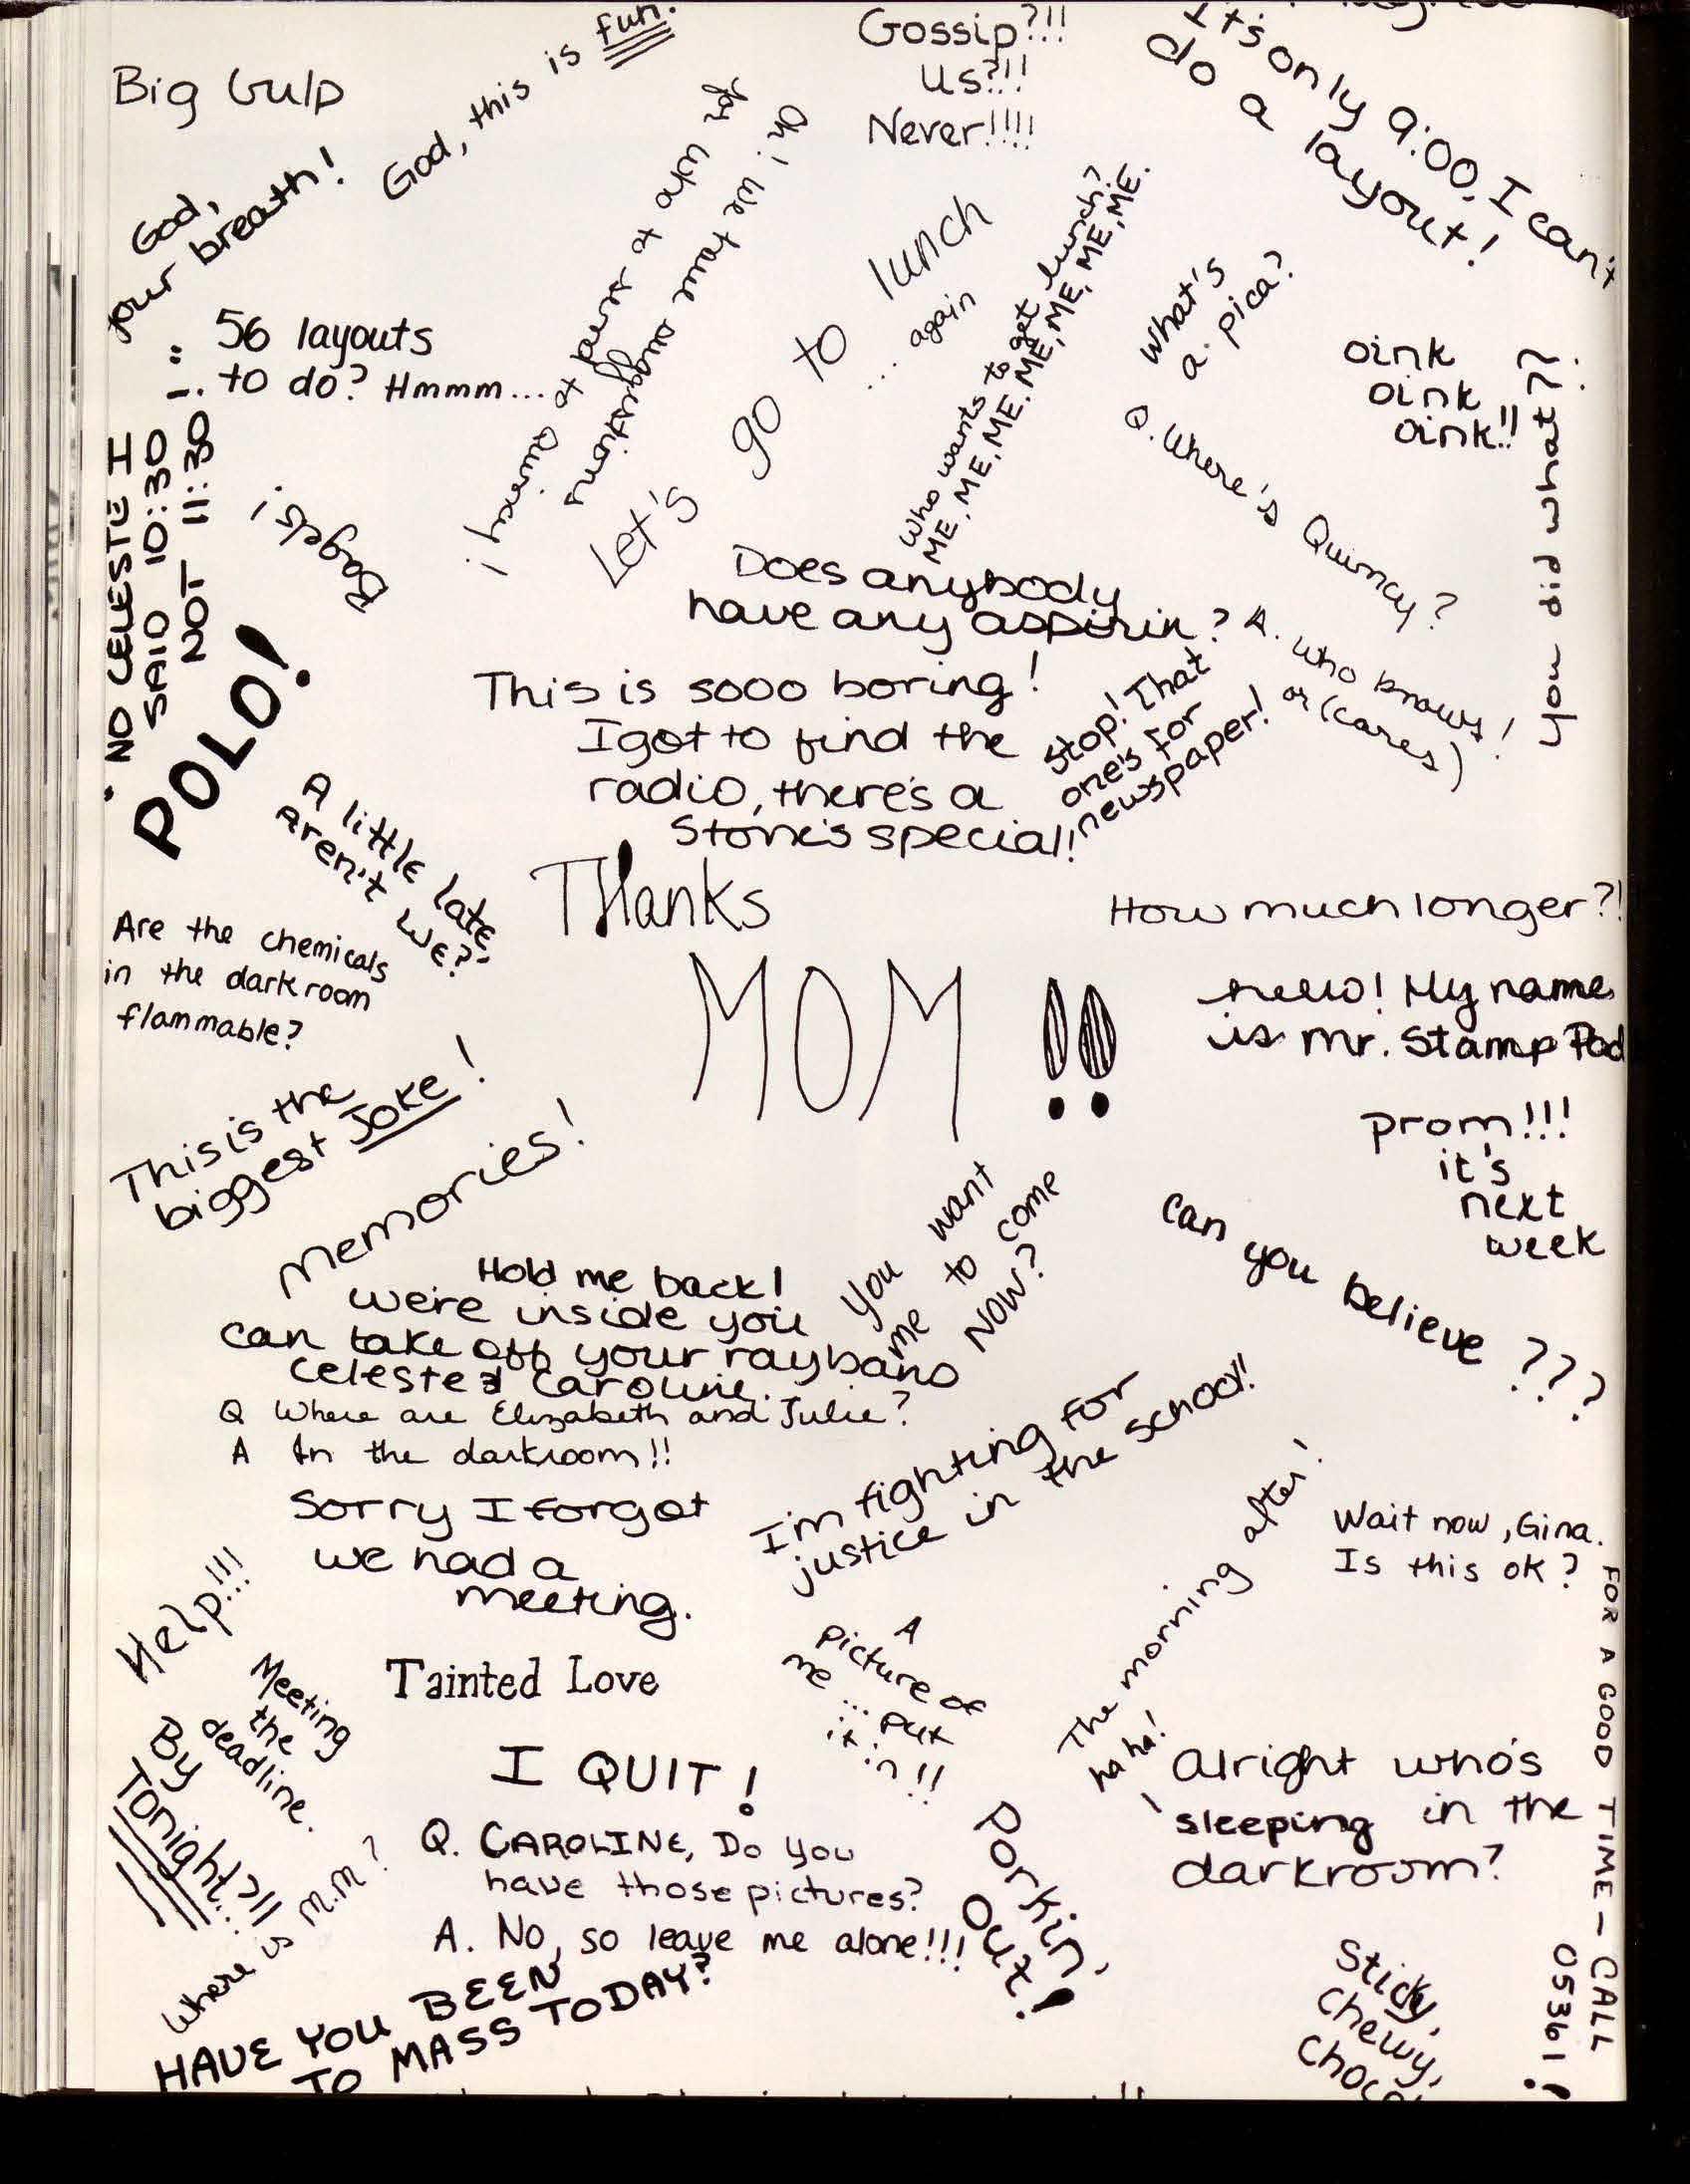 Big Gulp
God, this is fun.
Gossip?!!
Us?!!
Never!!!!
It's only 9:00, I can't
do a layout!
God,
your breath!
Oh! We have suggestions
for who to send it to
Let's go to lunch
... again
Who wants to get lunch?
ME, ME, ME, ME. ME, ME, ME, ME, ME.
What's
a pica?
56 layouts
to do? Hmmm...
oink
oink
oink!!
you did what??
"NO CELESTE I
SAID 10:30
NOT 11:30!"
Dagget!
POLO!
Q. Where's Quincy?
A. Who knows!
or (cares)
Does anybody
have any aspirin?
This is sooo boring!
I got to find the
radio, there's a
Stone's special!
Stop! That
one's for
newspaper!
A little late,
Aren't we?
Thanks
MOM!!
How much longer?!
Are the chemicals
in the darkroom
flammable?
hello! My name
is mr. Stamp Pad
This is the
biggest Joke!
Memories!
prom!!!
it's
next
week
Can you believe???
Hold me back!
we're inside you
can take off your raybans
celeste & Caroline.
You want
me to come
NOW?
Q Where are Elizabeth and Julie?
A In the darkroom!!
I'm fighting for
justice in the school!!
Sorry I forgot
we had a
meeting.
Wait now, Gina.
Is this ok?
The morning after!
ha ha!
Help!!!
Meeting
the
deadline.
By
Tonight?!!...
Tainted Love
A
picture of
me... put
it in!!
I QUIT!
Alright who's
sleeping in the
darkroom?
FOR A GOOD TIME - CALL
05361!
Q. CAROLINE, Do you
have those pictures?
A. No, so leave me alone!!!
Porkin'
Out!
Where is M.M?
HAVE YOU BEEN
TO MASS TODAY?
Sticky,
Chewy,